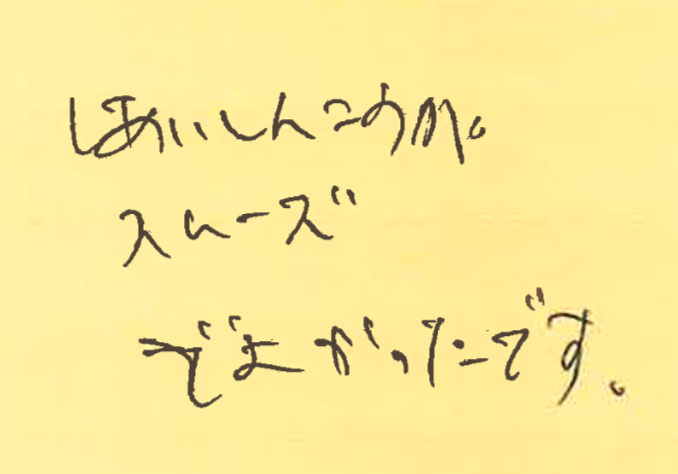 しんこうが。
スムーズ
でよかったです。